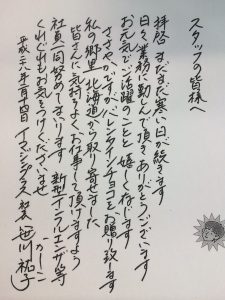 スタッフの皆様へ
拝啓 まだまだ寒い日が続きます
日々業務に勤しんで頂きありがとうございます
お元気でご活躍のことと嬉しく存じます
ささやかですがバレンタインチョコをお贈り致します
私の郷里、北海道から取り寄せました
皆さんに気持ちよくお仕事して頂けますよう
社員一同努めてまいります 新型インフルエンザ等
くれぐれもお気をつけくださいませ
かしこ
平成二八年二月 日 イマジンプラス 笹川祐子